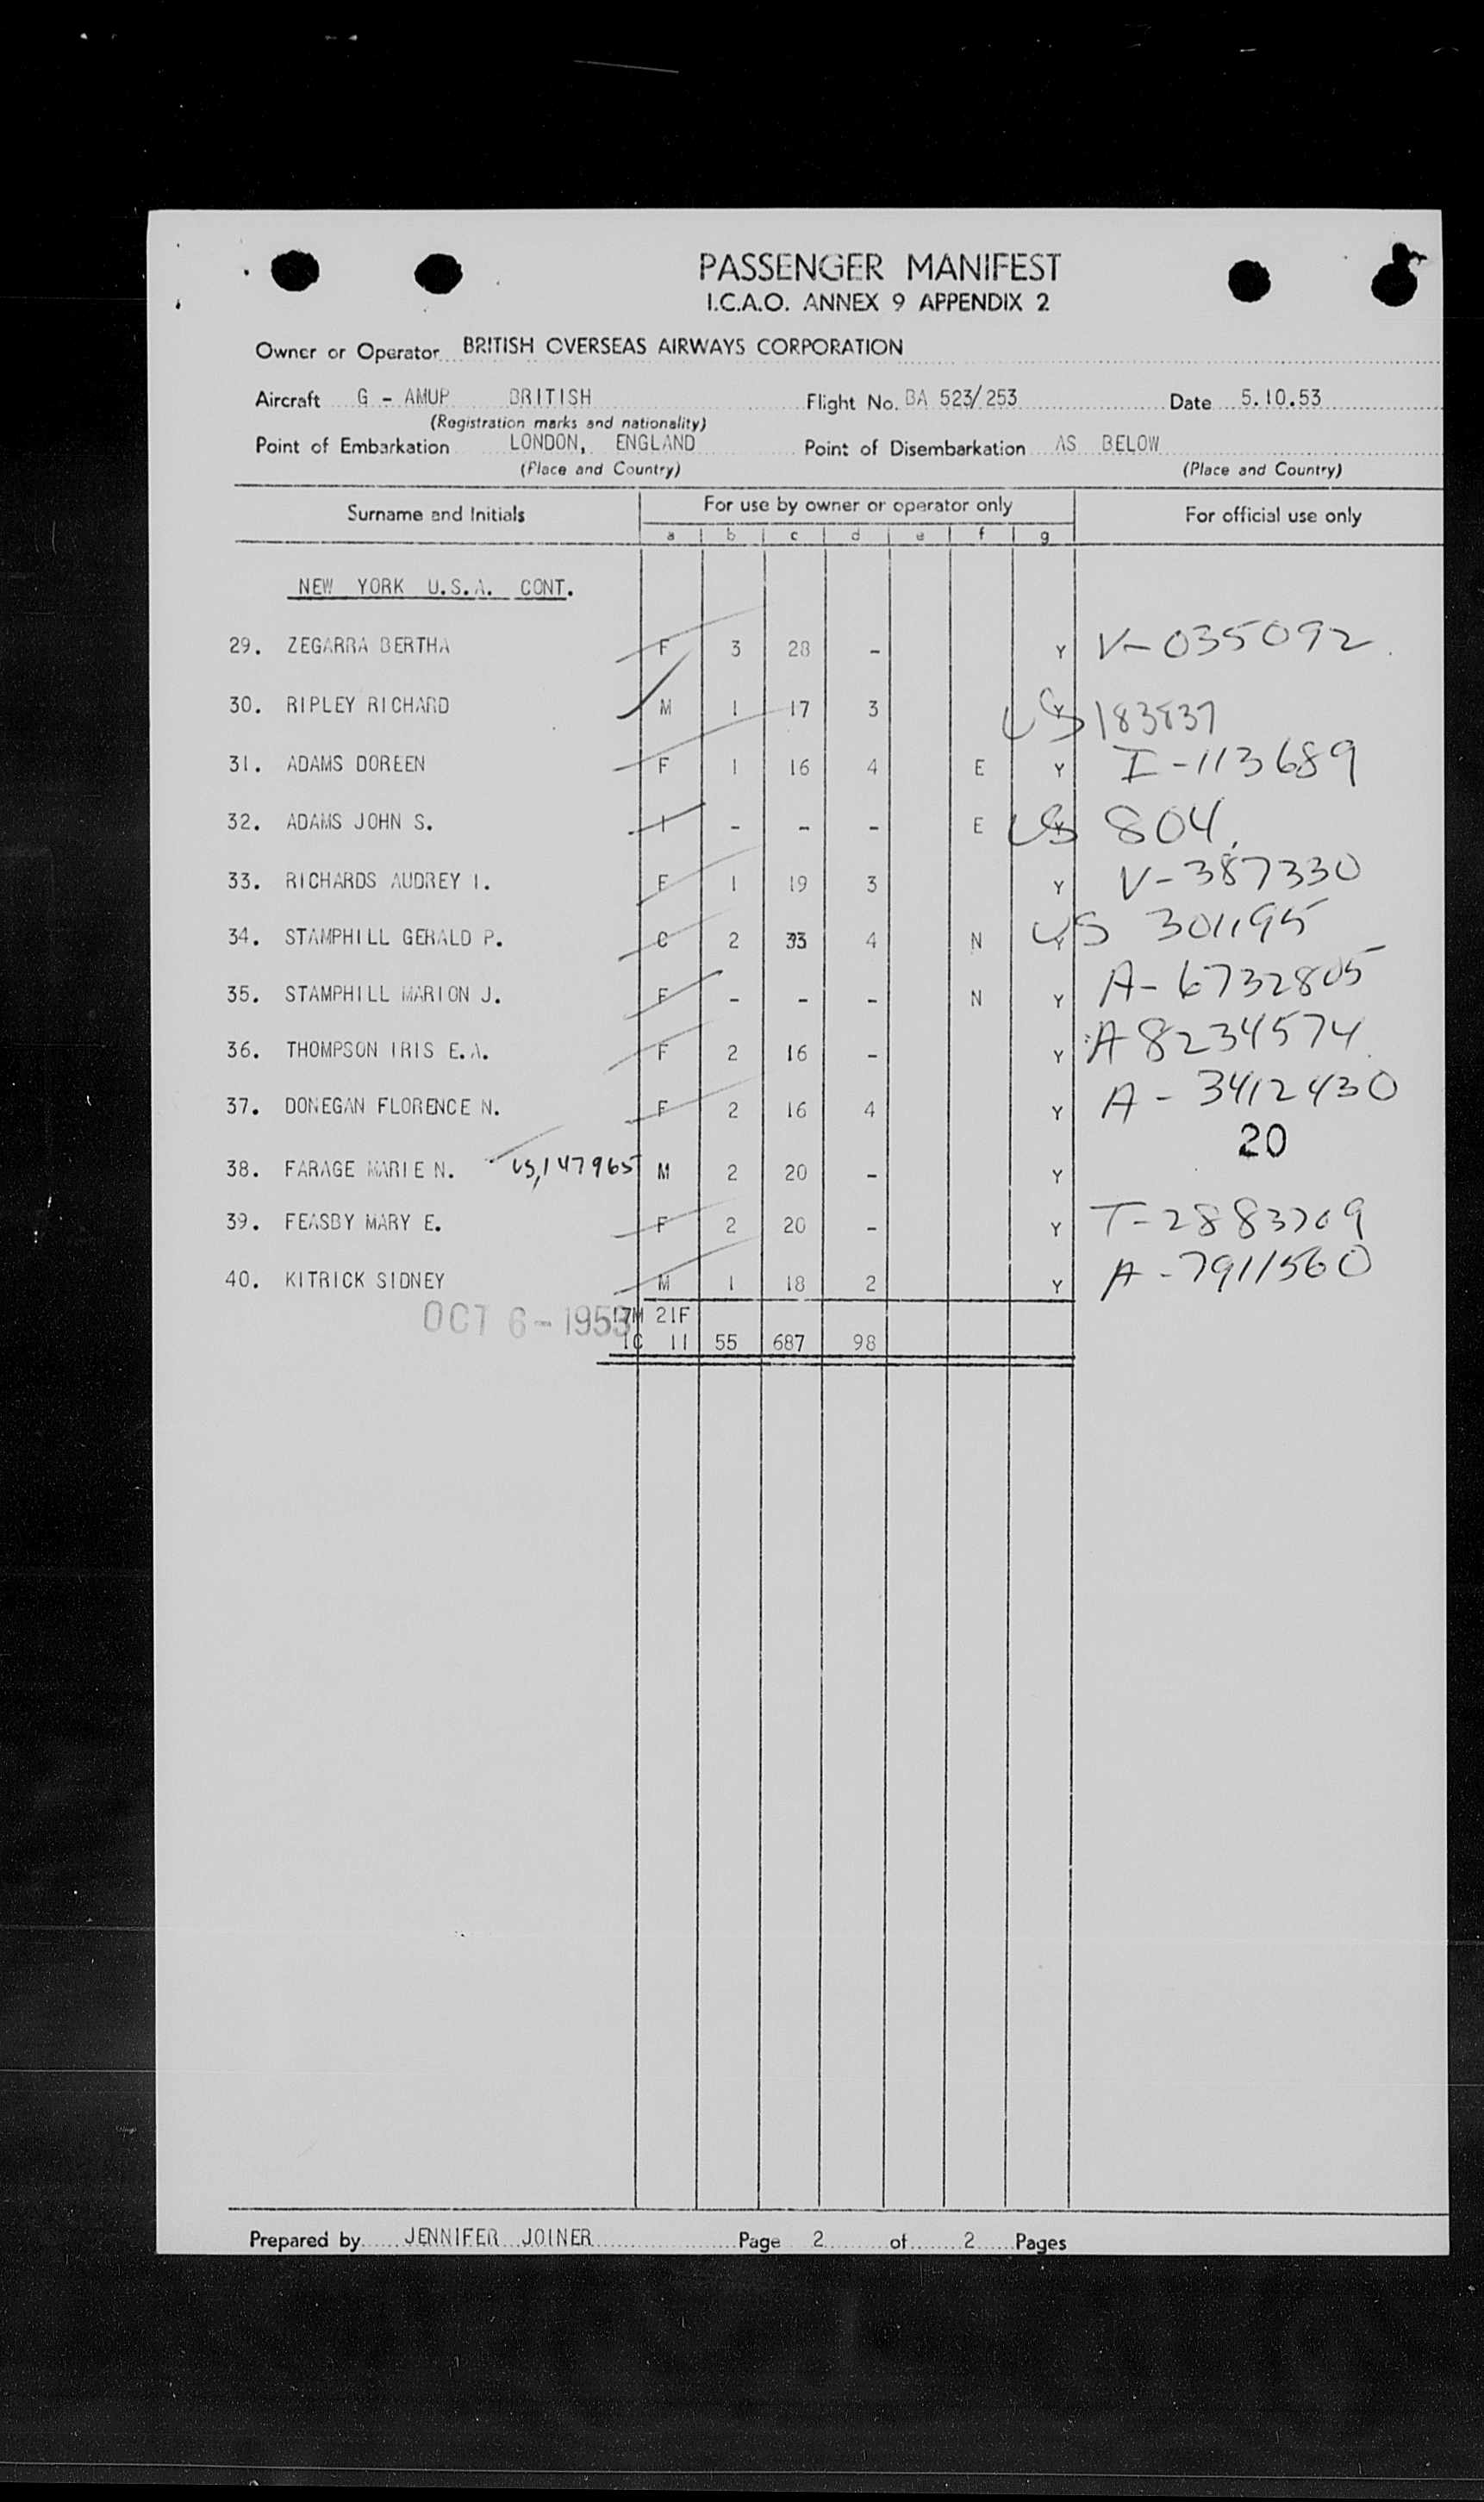 PASSENGER MANIFEST
I.C.A.O. ANNEX 9 APPENDIX 2
Owner or Operator BRITISH OVERSEAS AIRWAYS CORPORATION
Aircraft G - AMUP BRITISH Flight No. BA 523/253 Date 5.10.53
(Registration marks and nationality)
Point of Embarkation LONDON, ENGLAND Point of Disembarkation AS BELOW
(Place and Country) (Place and Country)
Surname and Initials For use by owner or operator only For official use only
a b c d e f g
NEW YORK U.S.A. CONT.
29. ZEGARRA BERTHA F 3 28 - Y V-035092
30. RIPLEY RICHARD M 1 17 3 Y US 183837
31. ADAMS DOREEN F 1 16 4 E Y I-113689
32. ADAMS JOHN S. I - - - E Y US 804
33. RICHARDS AUDREY I. F 1 19 3 Y V-387330
34. STAMPHILL GERALD P. C 2 33 4 N Y US 301195
35. STAMPHILL MARION J. F - - - N Y A-6732805
36. THOMPSON IRIS E.A. F 2 16 - Y A 8234574
37. DONEGAN FLORENCE N. F 2 16 4 Y A-3412430
20
38. FARAGE MARIE N. US,147965 M 2 20 - Y
39. FEASBY MARY E. F 2 20 - Y T-2883709
40. KITRICK SIDNEY M 1 18 2 Y A-7911560
OCT 6-1953 17M 21F
1C 1I 55 687 98
Prepared by JENNIFER JOINER Page 2 of 2 Pages